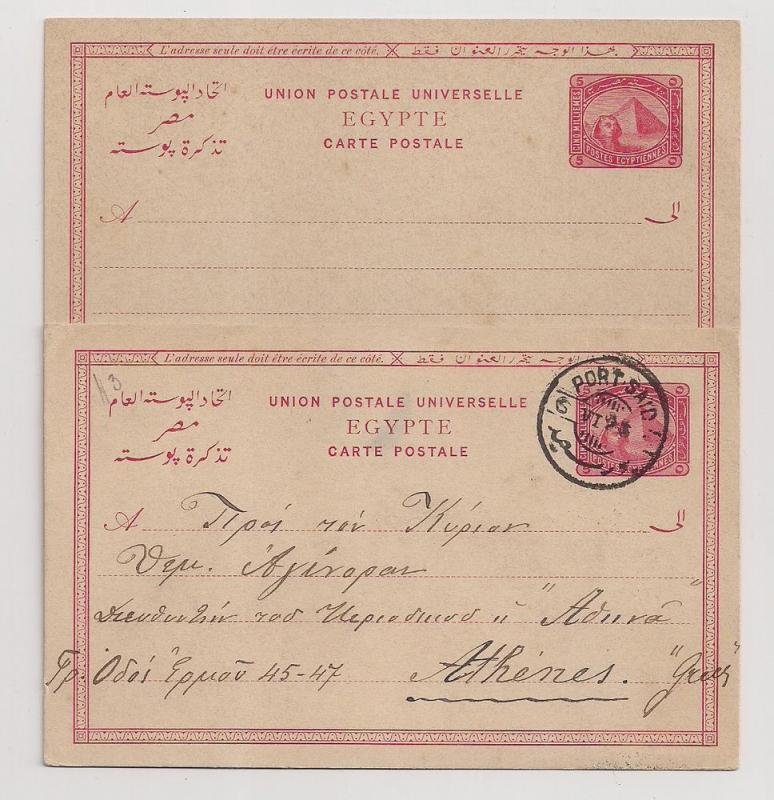 L'adresse seule doit être écrite de ce côté. بهذا الوجه يحرر العنوان فقط
اتحاد البوسته العام
مصر
تذكرة بوسته
UNION POSTALE UNIVERSELLE
EGYPTE
CARTE POSTALE
5 ٥
CINQ MILLIEMES
5 POSTES EGYPTIENNES ٥
A الى
L'adresse seule doit être écrite de ce côté. بهذا الوجه يحرر العنوان فقط
اتحاد البوسته العام
مصر
تذكرة بوسته
UNION POSTALE UNIVERSELLE
EGYPTE
CARTE POSTALE
PORT-SAID
POSTES EGYPTIENNES ٥
A Πρὸς τὸν Κύριον الى
Θεμ. Ἀγίνοραν
Διευθυντὴν τοῦ "Ἀθηνᾶ"
Γρ. Ὁδὸς Ἑρμοῦ 45-47 Athénes.